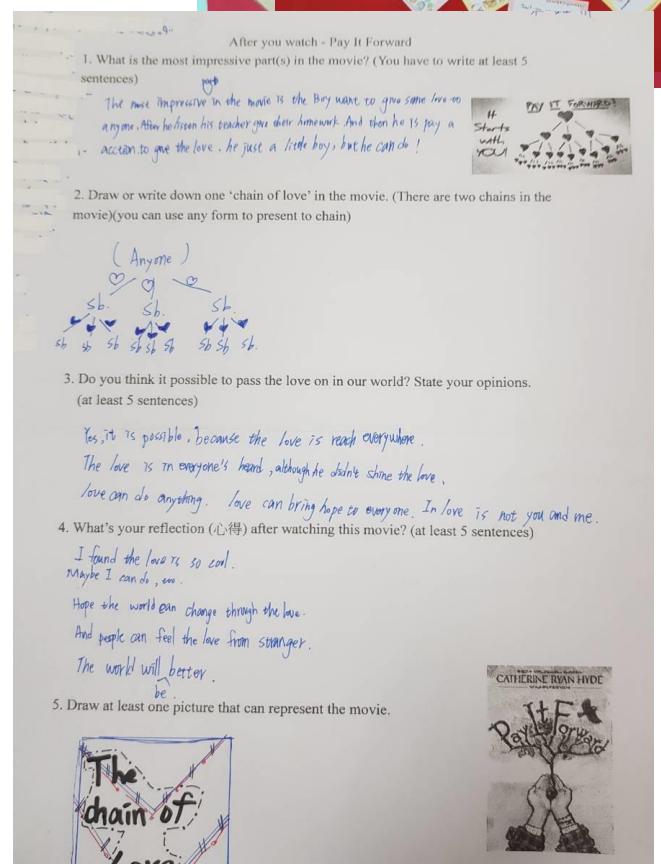 After you watch - Pay It Forward
1. What is the most impressive part(s) in the movie? (You have to write at least 5
sentences)
part
The most impressive in the movie is the Boy want to give some love to
anyone. After he listen his teacher gave their homework. And then he is pay a
acction to give the love. he just a little boy, but he can do !
It
Starts
with
YOU!
PAY IT FORWARD!
2. Draw or write down one ‘chain of love’ in the movie. (There are two chains in the
movie)(you can use any form to present to chain)
( Anyone )
sb. sb. sb.
sb sb sb sb sb sb sb sb sb.
3. Do you think it possible to pass the love on in our world? State your opinions.
(at least 5 sentences)
Yes, it is possible. because the love is reach everywhere.
The love is in everyone's heard, although he didn't shine the love.
love can do anything. love can bring hope to everyone. In love is not you and me.
4. What’s your reflection (心得) after watching this movie? (at least 5 sentences)
I found the love is so cool.
Maybe I can do, too.
Hope the world can change through the love.
And people can feel the love from stranger.
The world will better.
be
5. Draw at least one picture that can represent the movie.
The
chain of
Love
CATHERINE RYAN HYDE
Pay It Forward